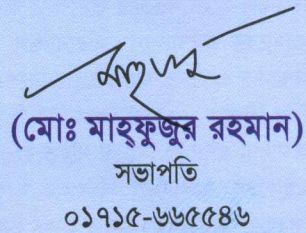 (মোঃ মাহ্ফুজুর রহমান)
সভাপতি
০১৭১৫-৬৬৫৫৪৬